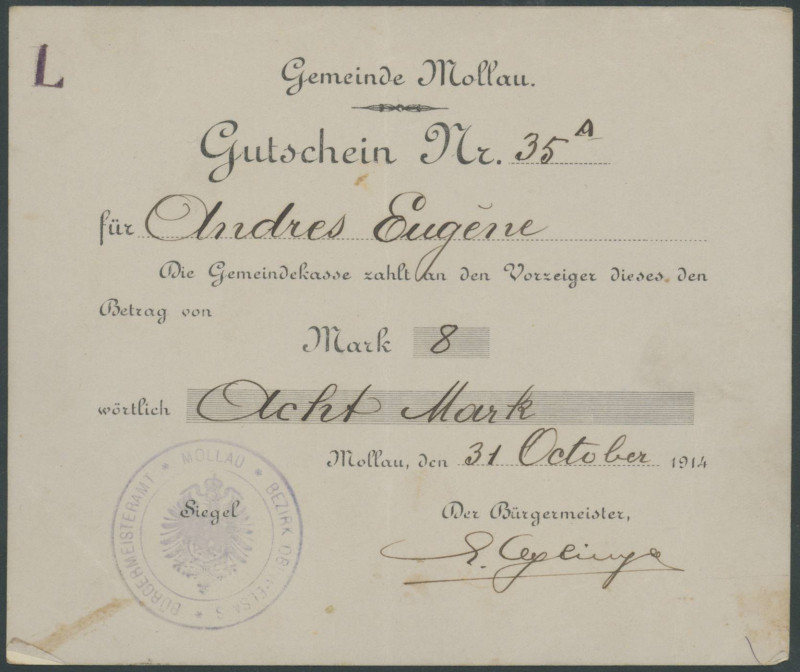 L
Gemeinde Mollau.
Gutschein Nr. 35 A
für Andres Eugène
Die Gemeindekasse zahlt an den Vorzeiger dieses den
Betrag von
Mark 8
wörtlich Acht Mark
Mollau, den 31 October 1914
Siegel
Der Bürgermeister,
BÜRGERMEISTERAMT * MOLLAU * BEZIRK OBER-ELSASS *